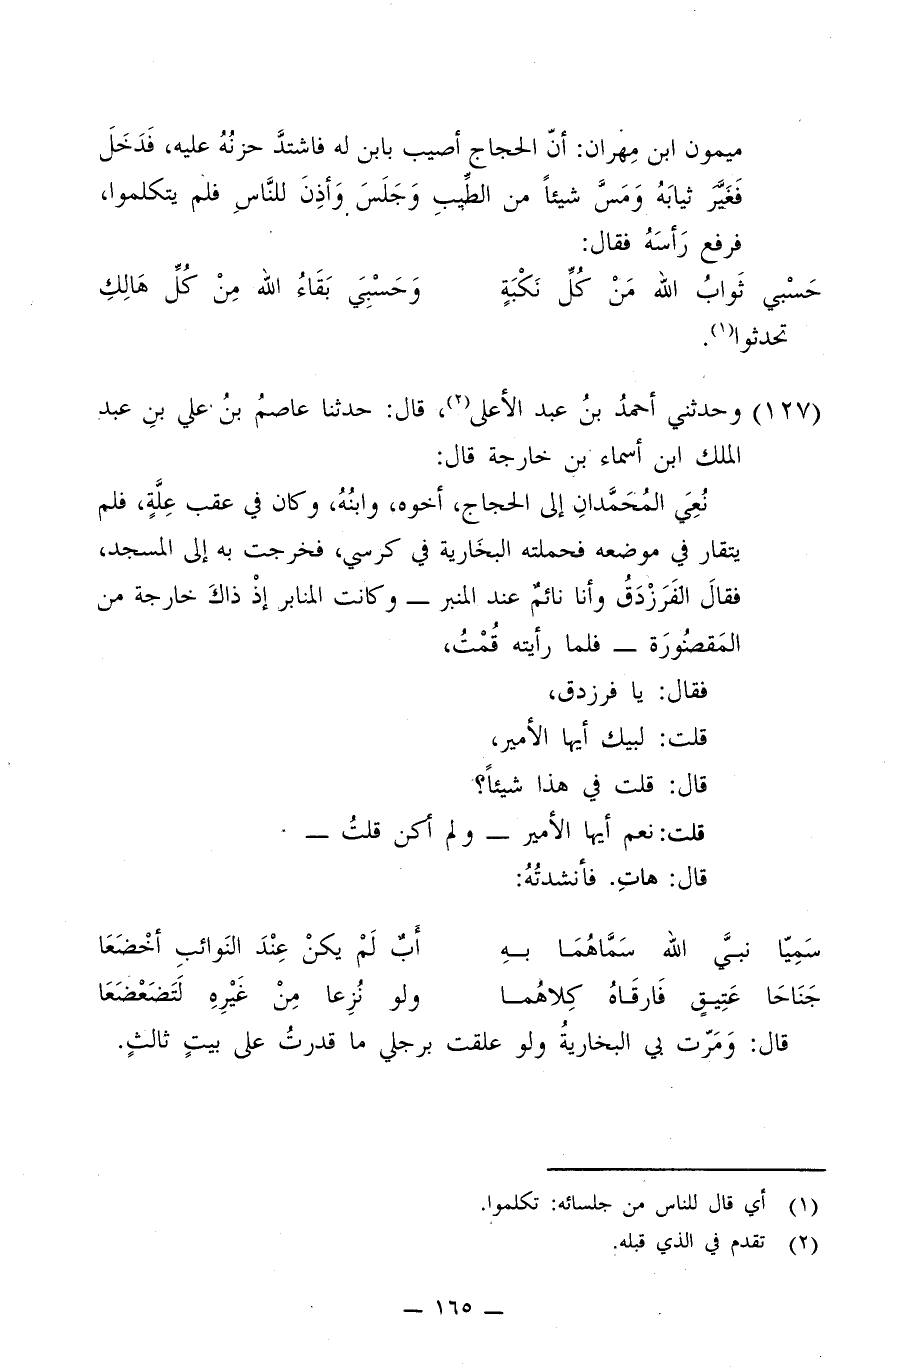 ميمون ابن مِهران: أنّ الحجاج أصيب بابن له فاشتدَّ حزنُهُ عليه، فَدَخَلَ
فَغَيَّرَ ثيابَهُ وَمَسَّ شيئاً من الطِّيبِ وَجَلَسَ وَأذِنَ للنَّاسِ فلم يتكلموا،
فرفع رَأسَهُ فقال:
حَسْبي ثَوابُ الله مَنْ كُلِّ نَكْبَةٍ وَحَسْبِيَ بَقَاءُ الله مِنْ كُلِّ هَالِكِ
تحدثوا(١).
(١٢٧) وحدثني أحمدُ بنُ عبد الأعلى(٢)، قال: حدثنا عاصمُ بنُ علي بنِ عبد
الملك ابن أسماء بن خارجة قال:
نُعِيَ المُحَمَّدانِ إلى الحجاج، أخوه، وابنُهُ، وكان في عقب عِلَّةٍ، فلم
يتقار في موضعه فحملته البخَارية في كرسي، فخرجت به إلى المسجد،
فقالَ الفَرَزْدَقُ وأنا نائمٌ عند المنبر — وكانت المنابر إذْ ذاكَ خارجة من
المَقصُورَة — فلما رأيته قُمْتُ،
فقال: يا فرزدق،
قلت: لبيك أيها الأمير،
قال: قلت في هذا شيئاً؟
قلت: نعم أيها الأمير — ولم أكن قلتُ —
قال: هاتِ. فأنشدتُهُ:
سَمِيّا نبيَّ الله سَمَّاهُمَا بهِ أَبٌ لَمْ يكنْ عِنْدَ النَوائبِ أخْضَعَا
جَنَاحَا عَتِيقٍ فَارقَاهُ كِلاهُمـا ولو نُزِعا مِنْ غَيْرِهِ لَتَضَعْضَعَا
قال: وَمَرّت بي البخاريةُ ولو علقت برجلي ما قدرتُ على بيتٍ ثالثٍ.
(١) أي قال للناس من جلسائه: تكلموا.
(٢) تقدم في الذي قبله.
— ١٦٥ —